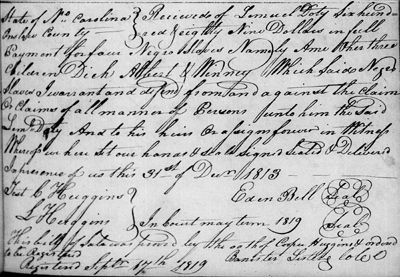 State of No. Carolina } Received of Lemuel Doty Six hund-
Onslow County } red & eighty Nine Dollars in full
Payment for four Negro Slaves Namely Ame & her three
Children Dick Albert & Winney Which Said Negro
Slaves I warrant and defend from and against the Claim
Or Claims of all manner of Persons unto him the Said
Leml. Doty And to his heirs Or assigns forever in Witness
Whereof we here Set our hands & seals Signed Sealed & Delivered
In presence of us this 31st of Decr. 1813
Test C Huggins } Eden Bell Seal
L Huggins } In Court may term 1819 Seal
This bill of Sale was proved by the oath of Huggins & ordered
to be Registered
Registered Septr. 17th 1819